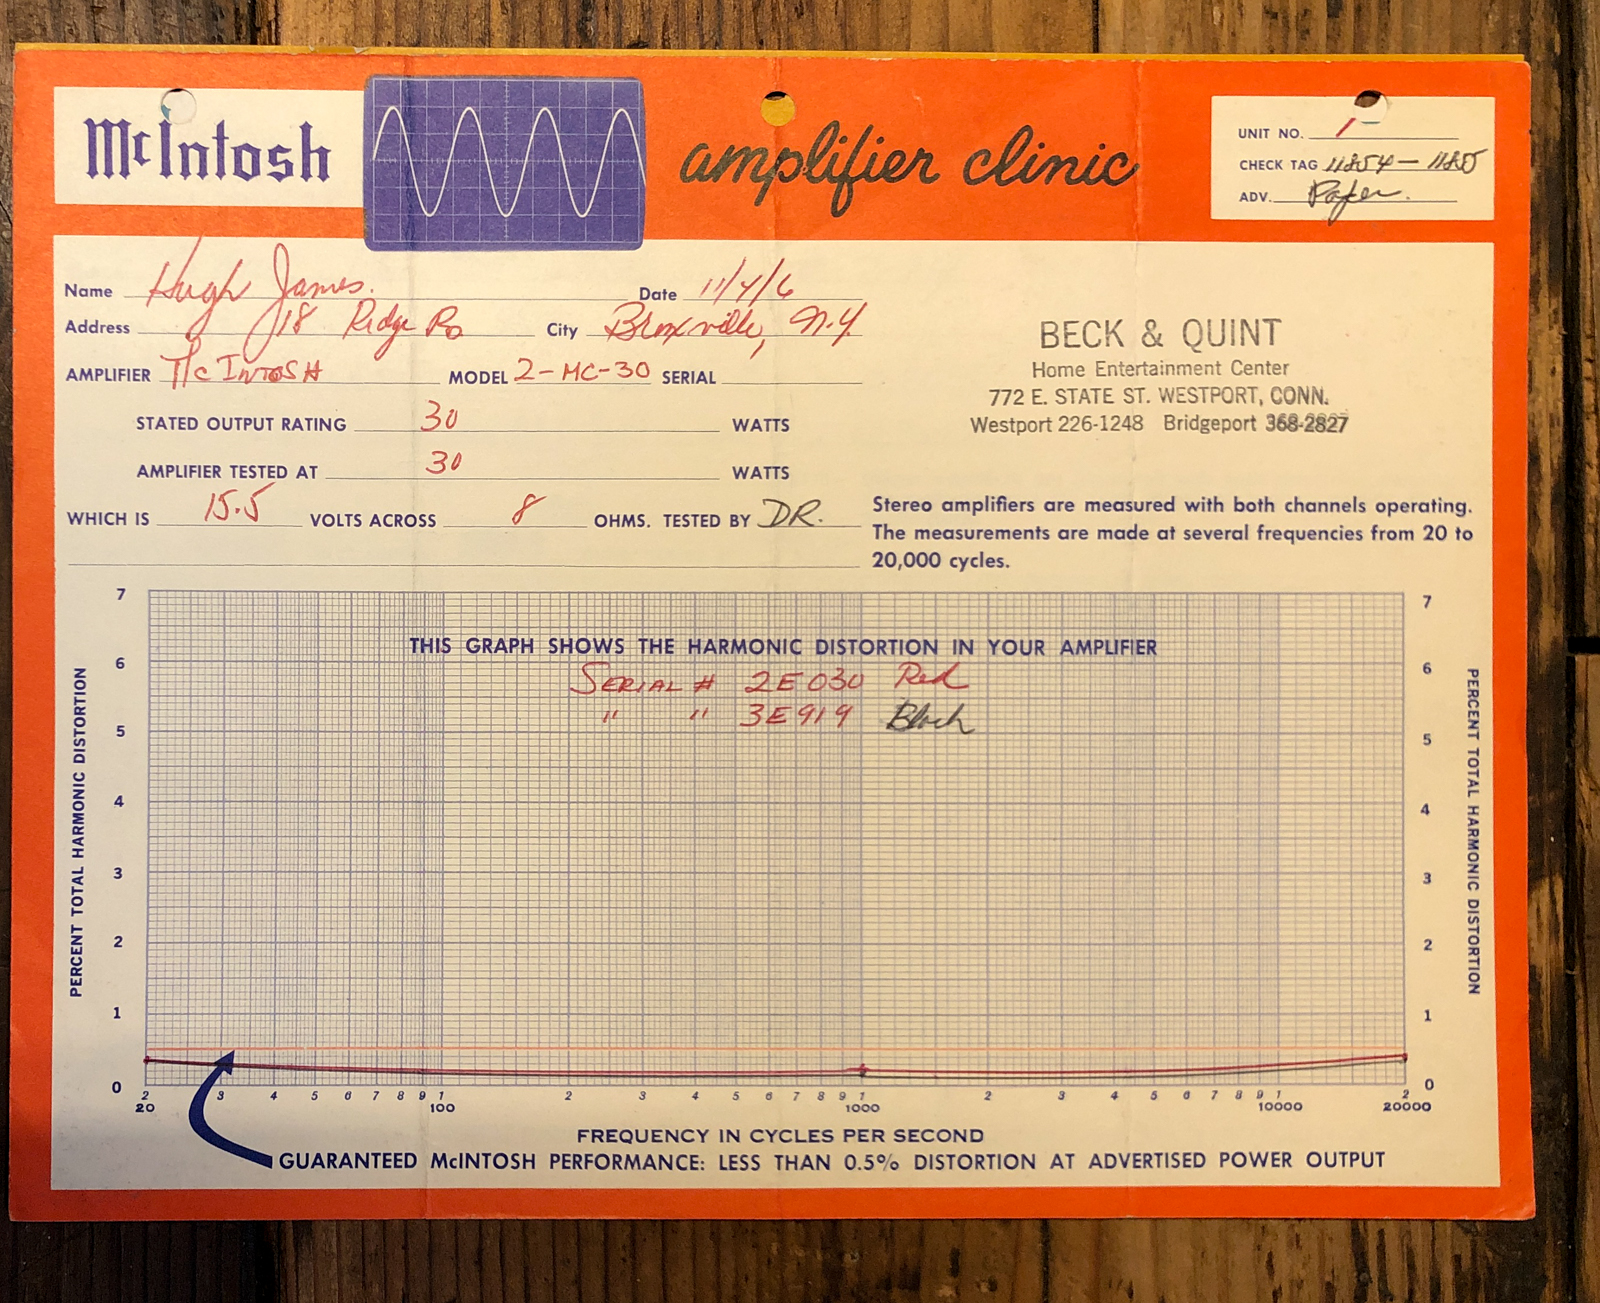 McIntosh
amplifier clinic
UNIT NO. 1
CHECK TAG 11854 – 1185
ADV. Paper.
Name Hugh James. Date 11/4/6
Address 18 Ridge Rd City Bronxville, N.Y.
AMPLIFIER McINTOSH MODEL 2-MC-30 SERIAL
STATED OUTPUT RATING 30 WATTS
AMPLIFIER TESTED AT 30 WATTS
WHICH IS 15.5 VOLTS ACROSS 8 OHMS. TESTED BY DR.
BECK & QUINT
Home Entertainment Center
772 E. STATE ST. WESTPORT, CONN.
Westport 226-1248 Bridgeport 368-2827
Stereo amplifiers are measured with both channels operating.
The measurements are made at several frequencies from 20 to
20,000 cycles.
THIS GRAPH SHOWS THE HARMONIC DISTORTION IN YOUR AMPLIFIER
SERIAL # 2E030 Red
" " 3E919 Black
PERCENT TOTAL HARMONIC DISTORTION
7
6
5
4
3
2
1
0
PERCENT TOTAL HARMONIC DISTORTION
7
6
5
4
3
2
1
0
2 3 4 5 6 7 8 9 1 2 3 4 5 6 7 8 9 1 2 3 4 5 6 7 8 9 1 2
20 100 1000 10000 20000
FREQUENCY IN CYCLES PER SECOND
GUARANTEED McINTOSH PERFORMANCE: LESS THAN 0.5% DISTORTION AT ADVERTISED POWER OUTPUT